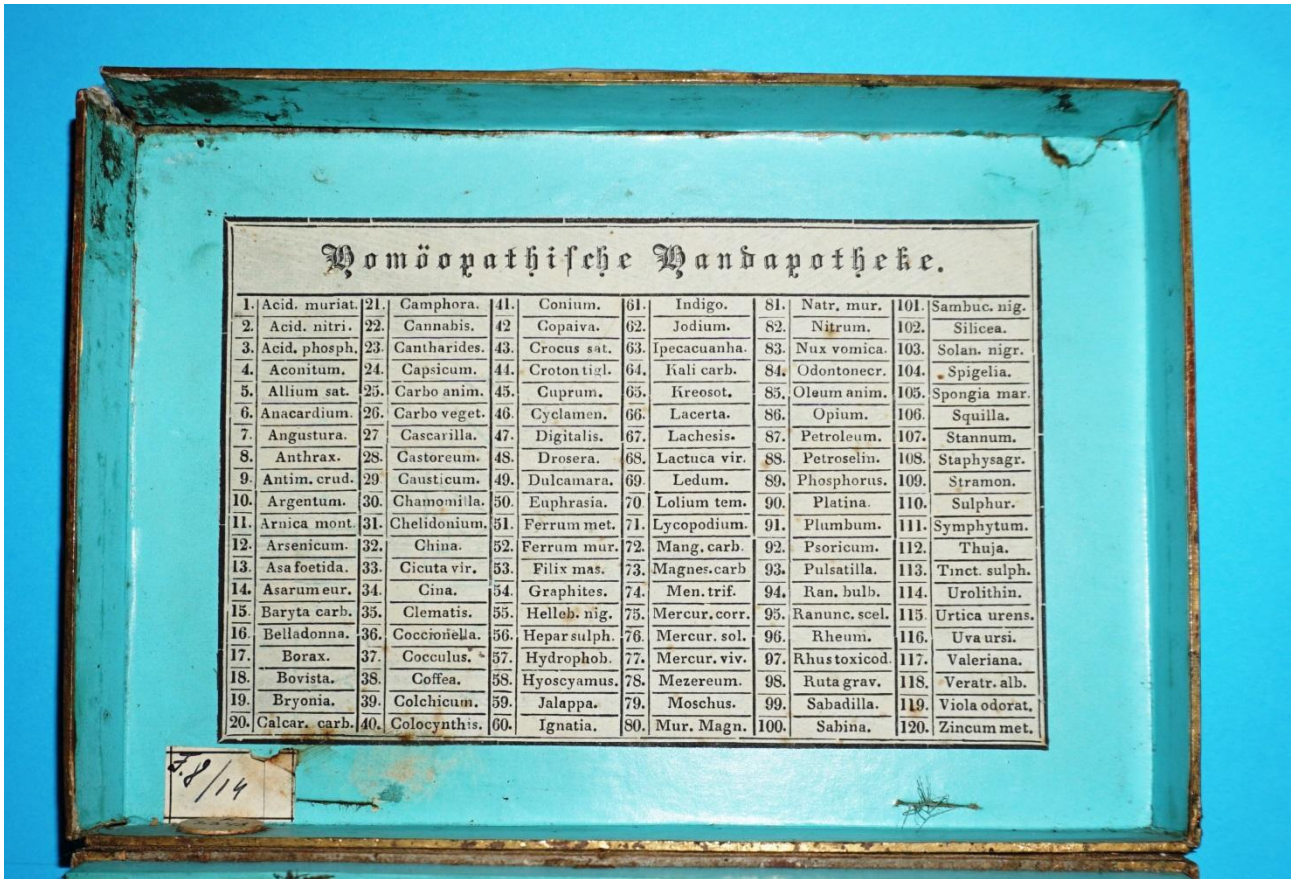 Homöopathiſche Handapotheke.
1. Acid. muriat. 21. Camphora. 41. Conium. 61. Indigo. 81. Natr. mur. 101. Sambuc. nig.
2. Acid. nitri. 22. Cannabis. 42 Copaiva. 62. Jodium. 82. Nitrum. 102. Silicea.
3. Acid. phosph. 23. Cantharides. 43. Crocus sat. 63. Ipecacuanha. 83. Nux vomica. 103. Solan. nigr.
4. Aconitum. 24. Capsicum. 44. Croton tigl. 64. Kali carb. 84. Odontonecr. 104. Spigelia.
5. Allium sat. 25. Carbo anim. 45. Cuprum. 65. Kreosot. 85. Oleum anim. 105. Spongia mar.
6. Anacardium. 26. Carbo veget. 46. Cyclamen. 66. Lacerta. 86. Opium. 106. Squilla.
7. Angustura. 27 Cascarilla. 47. Digitalis. 67. Lachesis. 87. Petroleum. 107. Stannum.
8. Anthrax. 28. Castoreum. 48. Drosera. 68. Lactuca vir. 88. Petroselin. 108. Staphysagr.
9. Antim. crud. 29 Causticum. 49. Dulcamara. 69. Ledum. 89. Phosphorus. 109. Stramon.
10. Argentum. 30. Chamomilla. 50. Euphrasia. 70 Lolium tem. 90. Platina. 110. Sulphur.
11. Arnica mont. 31. Chelidonium. 51. Ferrum met. 71. Lycopodium. 91. Plumbum. 111. Symphytum.
12. Arsenicum. 32. China. 52. Ferrum mur. 72. Mang. carb 92. Psoricum. 112. Thuja.
13. Asa foetida. 33. Cicuta vir. 53. Filix mas. 73. Magnes. carb 93. Pulsatilla. 113. Tinct. sulph.
14. Asarum eur. 34. Cina. 54. Graphites. 74. Men. trif. 94. Ran. bulb. 114. Urolithin.
15. Baryta carb. 35. Clematis. 55. Helleb. nig. 75. Mercur. corr. 95. Ranunc. scel. 115 Urtica urens.
16. Belladonna. 36. Coccionella. 56. Hepar sulph. 76. Mercur. sol. 96. Rheum. 116. Uva ursi.
17. Borax. 37. Cocculus. 57. Hydrophob. 77. Mercur. viv. 97. Rhus toxicod. 117. Valeriana.
18. Bovista. 38. Coffea. 58. Hyoscyamus. 78. Mezereum. 98. Ruta grav. 118. Veratr. alb.
19. Bryonia. 39. Colchicum. 59. Jalappa. 79. Moschus. 99. Sabadilla. 119. Viola odorat.
20. Calcar. carb. 40. Colocynthis. 60. Ignatia. 80. Mur. Magn. 100. Sabina. 120. Zincum met.
8/14